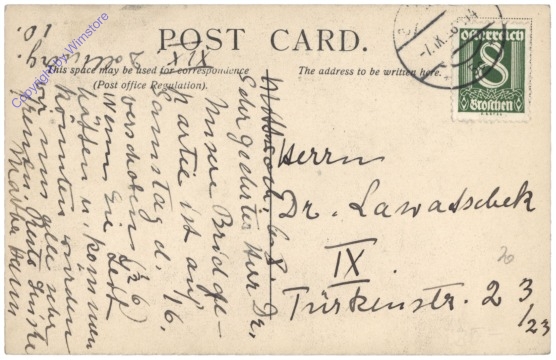 POST CARD.
This space may be used for correspondence
(Post office Regulation).
The address to be written here.
Österreich
8
Groschen
Copyright by Wimstore
XIX
10.
Mittwoch, 6. 8.
Sehr geehrter Herr Dr,
Unsere Bridge-
partie ist auf
Samstag d. 16.
verschoben (½6)
Wenn Sie Zeit
hätten u. kommen
könnten würden
wir uns alle sehr
freuen.
Herrn
Dr. Lawatschek
IX.
Türkenstr. 23
/23